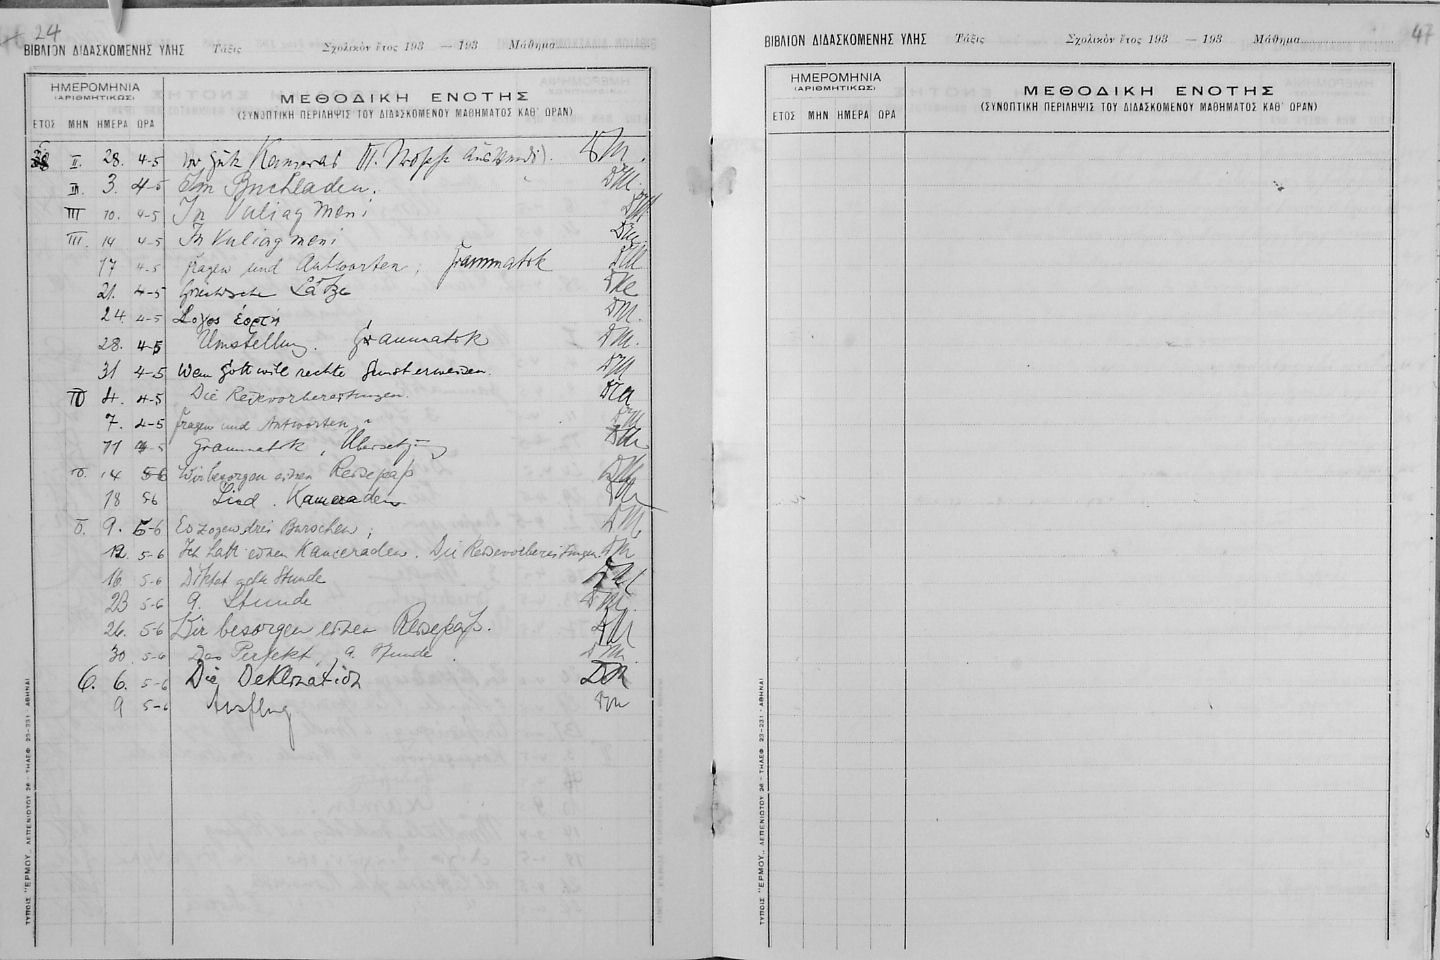 24
ΒΙΒΛΙΟΝ ΔΙΔΑΣΚΟΜΕΝΗΣ ΥΛΗΣ Τάξις Σχολικὸν ἔτος 193 — 193 Μάθημα
ΗΜΕΡΟΜΗΝΙΑ
(ΑΡΙΘΜΗΤΙΚΩΣ)
ΕΤΟΣ ΜΗΝ ΗΜΕΡΑ ΩΡΑ
ΜΕΘΟΔΙΚΗ ΕΝΟΤΗΣ
(ΣΥΝΟΠΤΙΚΗ ΠΕΡΙΛΗΨΙΣ ΤΟΥ ΔΙΔΑΣΚΟΜΕΝΟΥ ΜΑΘΗΜΑΤΟΣ ΚΑΘ' ΩΡΑΝ)
II. 28. 4-5 Kamerad
III. 3. 4-5 Im Buchladen.
III 10. 4-5 In Vuliagmeni
III. 14 4-5 In Vuliagmeni
17 4-5 Fragen und Antworten, Grammatik
21. 4-5 Griechische Sätze
24. 4-5 Λόγος ἑορτή
28. 4-5 Umstellung. Grammatik
31 4-5 Wem Gott will rechte Gunst erweisen.
4. 4-5 Die Reisevorbereitungen.
7. 4-5 Fragen und Antworten
11 4-5 Grammatik, Übersetzung
14 5-6 Wir besorgen einen Reisepaß
18 5-6 Lied. Kameraden
9. 5-6 Es zogen drei Burschen,
12. 5-6 Ich hatt einen Kameraden. Die Reisevorbereitungen.
16. 5-6 Diktat 9te Stunde
23 5-6 9. Stunde
26. 5-6 Wir besorgen einen Reisepaß.
30. 5-6 Das Perfekt, 9. Stunde
6. 6. 5-6 Die Deklination
9 5-6 Ausflug
ΤΥΠΟΙΣ "ΕΡΜΟΥ,, ΛΕΠΕΝΙΩΤΟΥ 26 - ΤΗΛΕΦ. 23-231 - ΑΘΗΝΑΙ
47
ΒΙΒΛΙΟΝ ΔΙΔΑΣΚΟΜΕΝΗΣ ΥΛΗΣ Τάξις Σχολικὸν ἔτος 193 — 193 Μάθημα
ΗΜΕΡΟΜΗΝΙΑ
(ΑΡΙΘΜΗΤΙΚΩΣ)
ΕΤΟΣ ΜΗΝ ΗΜΕΡΑ ΩΡΑ
ΜΕΘΟΔΙΚΗ ΕΝΟΤΗΣ
(ΣΥΝΟΠΤΙΚΗ ΠΕΡΙΛΗΨΙΣ ΤΟΥ ΔΙΔΑΣΚΟΜΕΝΟΥ ΜΑΘΗΜΑΤΟΣ ΚΑΘ' ΩΡΑΝ)
ΤΥΠΟΙΣ "ΕΡΜΟΥ,, ΛΕΠΕΝΙΩΤΟΥ 26 - ΤΗΛΕΦ. 23-231 - ΑΘΗΝΑΙ